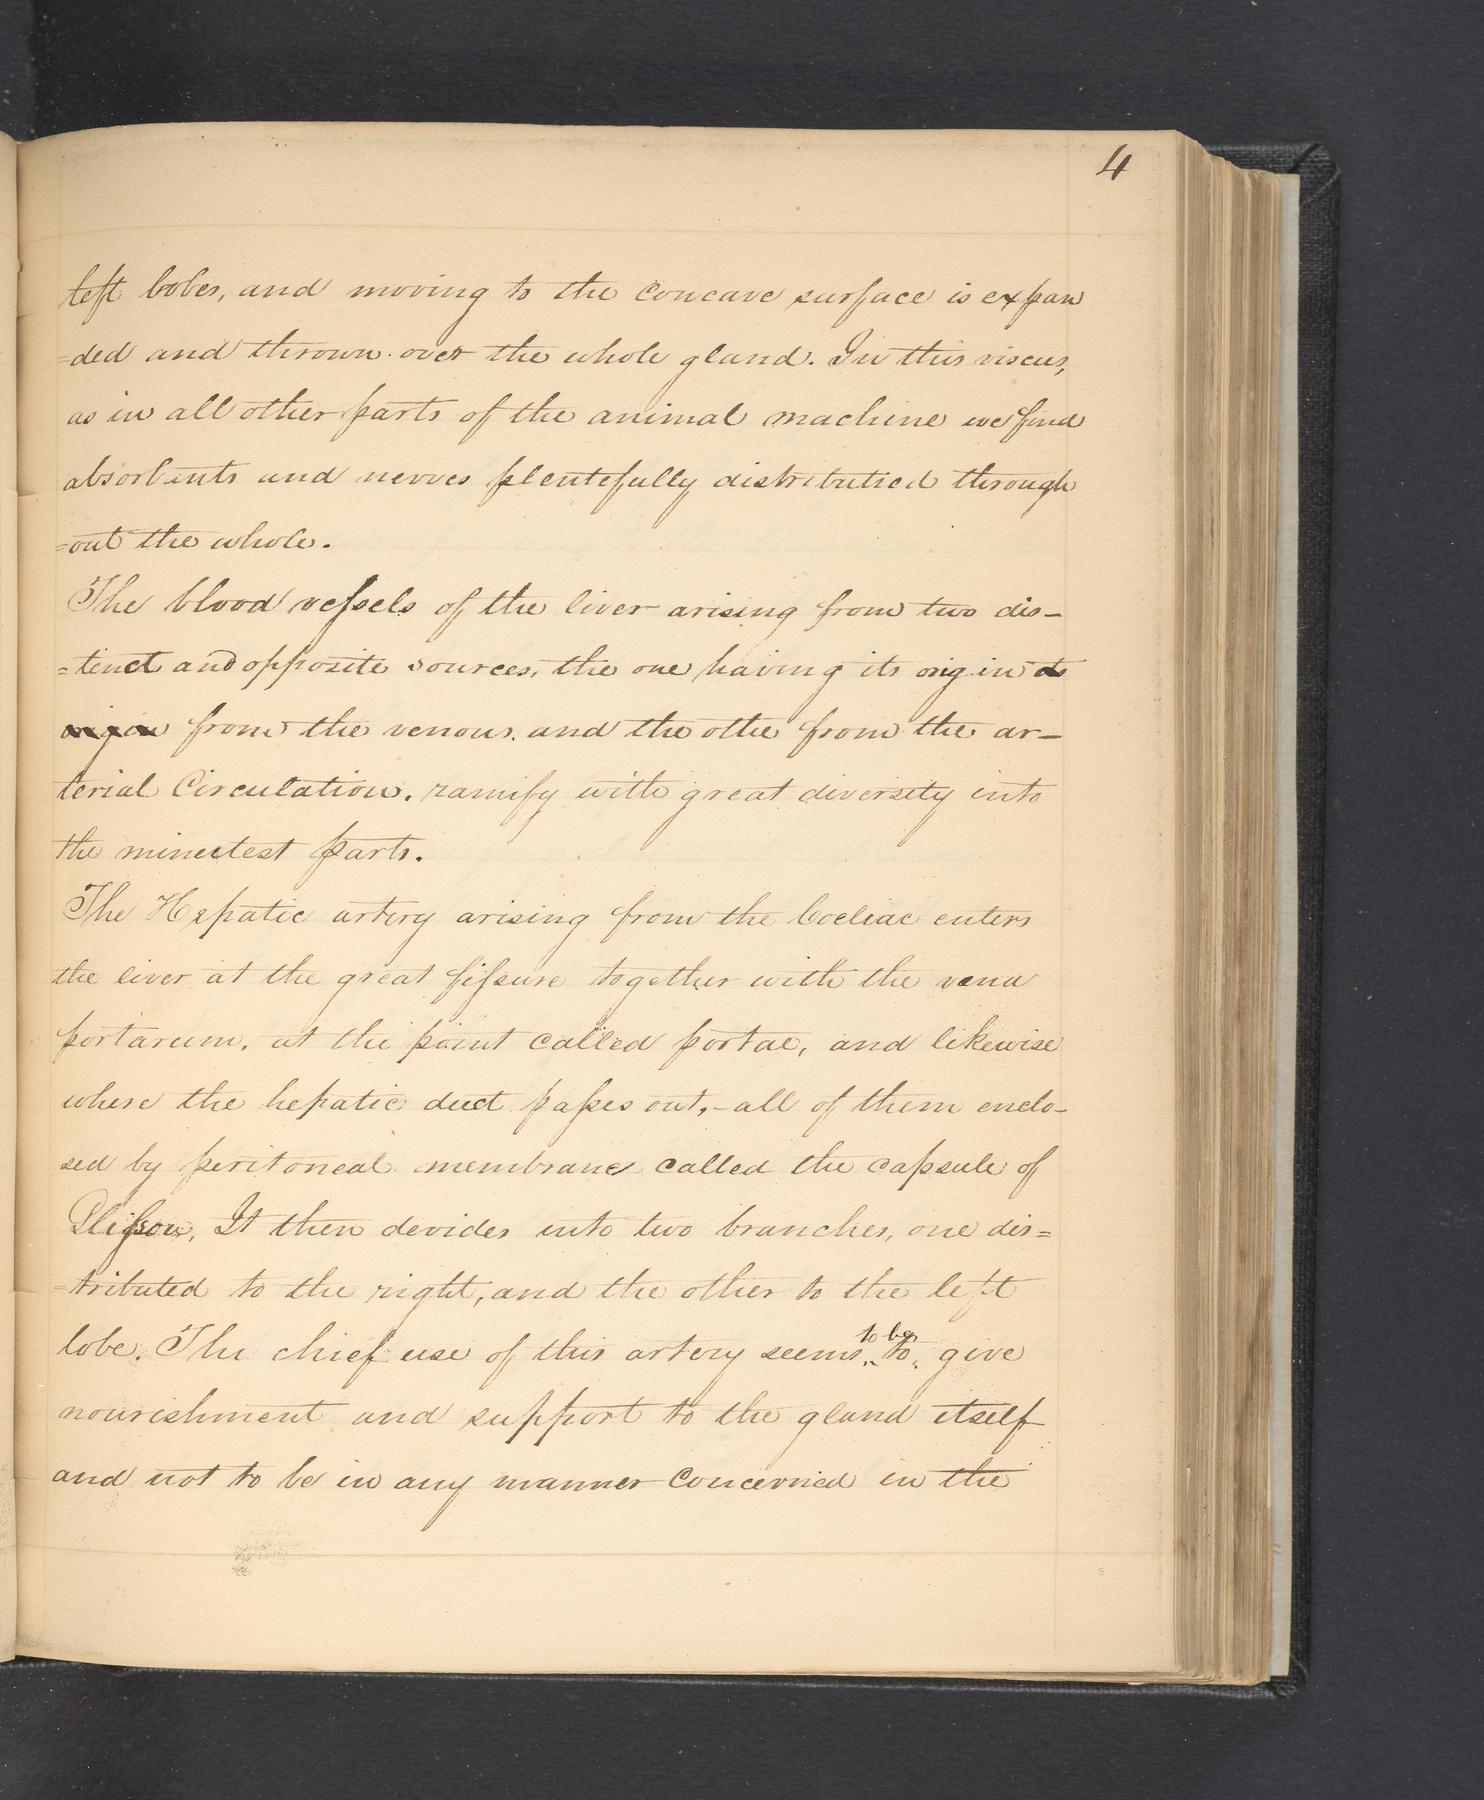 4
left bobes, and moving to the concave surface is expan
=ded and thrown over the whole gland. In this viscus,
as in all other parts of the animal machine we find
absorbents and nerves plentefully distributied through
=out the whole.
The blood vessels of the liver arising from two dis-
=tinct and opposite sources, the one having its origin
from the venous and the othe from the ar-
terial Circulation. ramify with great diversity into
the minutest parts.
The Hepatic artery arising from the Coeliac enters
the liver at the great fissure together with the vena
portarum, at the point called portae, and likewise
where the hepatic duct passes out,- all of them enclo-
sed by peritoneal membrane called the capsule of
Glisson, It then devides into two branches, one dis=
=tributed to the right, and the other to the left
lobe. The chief use of this artery seems to give
to be
nourishment and support to the gland itself
and not to be in any manner concernied in the